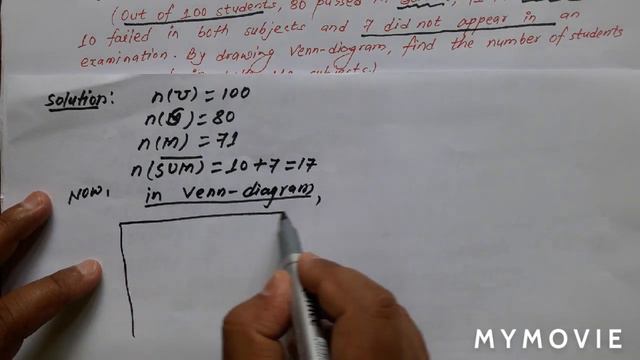 (Out of 100 students, 80 passed in
10 failed in both subjects and 7 did not appear in an
examination. By drawing Venn-diagram, find the number of students
subjects.)
Solution: n(U) = 100
n(S) = 80
n(M) = 71
n(S̅U̅M̅) = 10+7=17
NOW, in Venn-diagram,
MYMOVIE